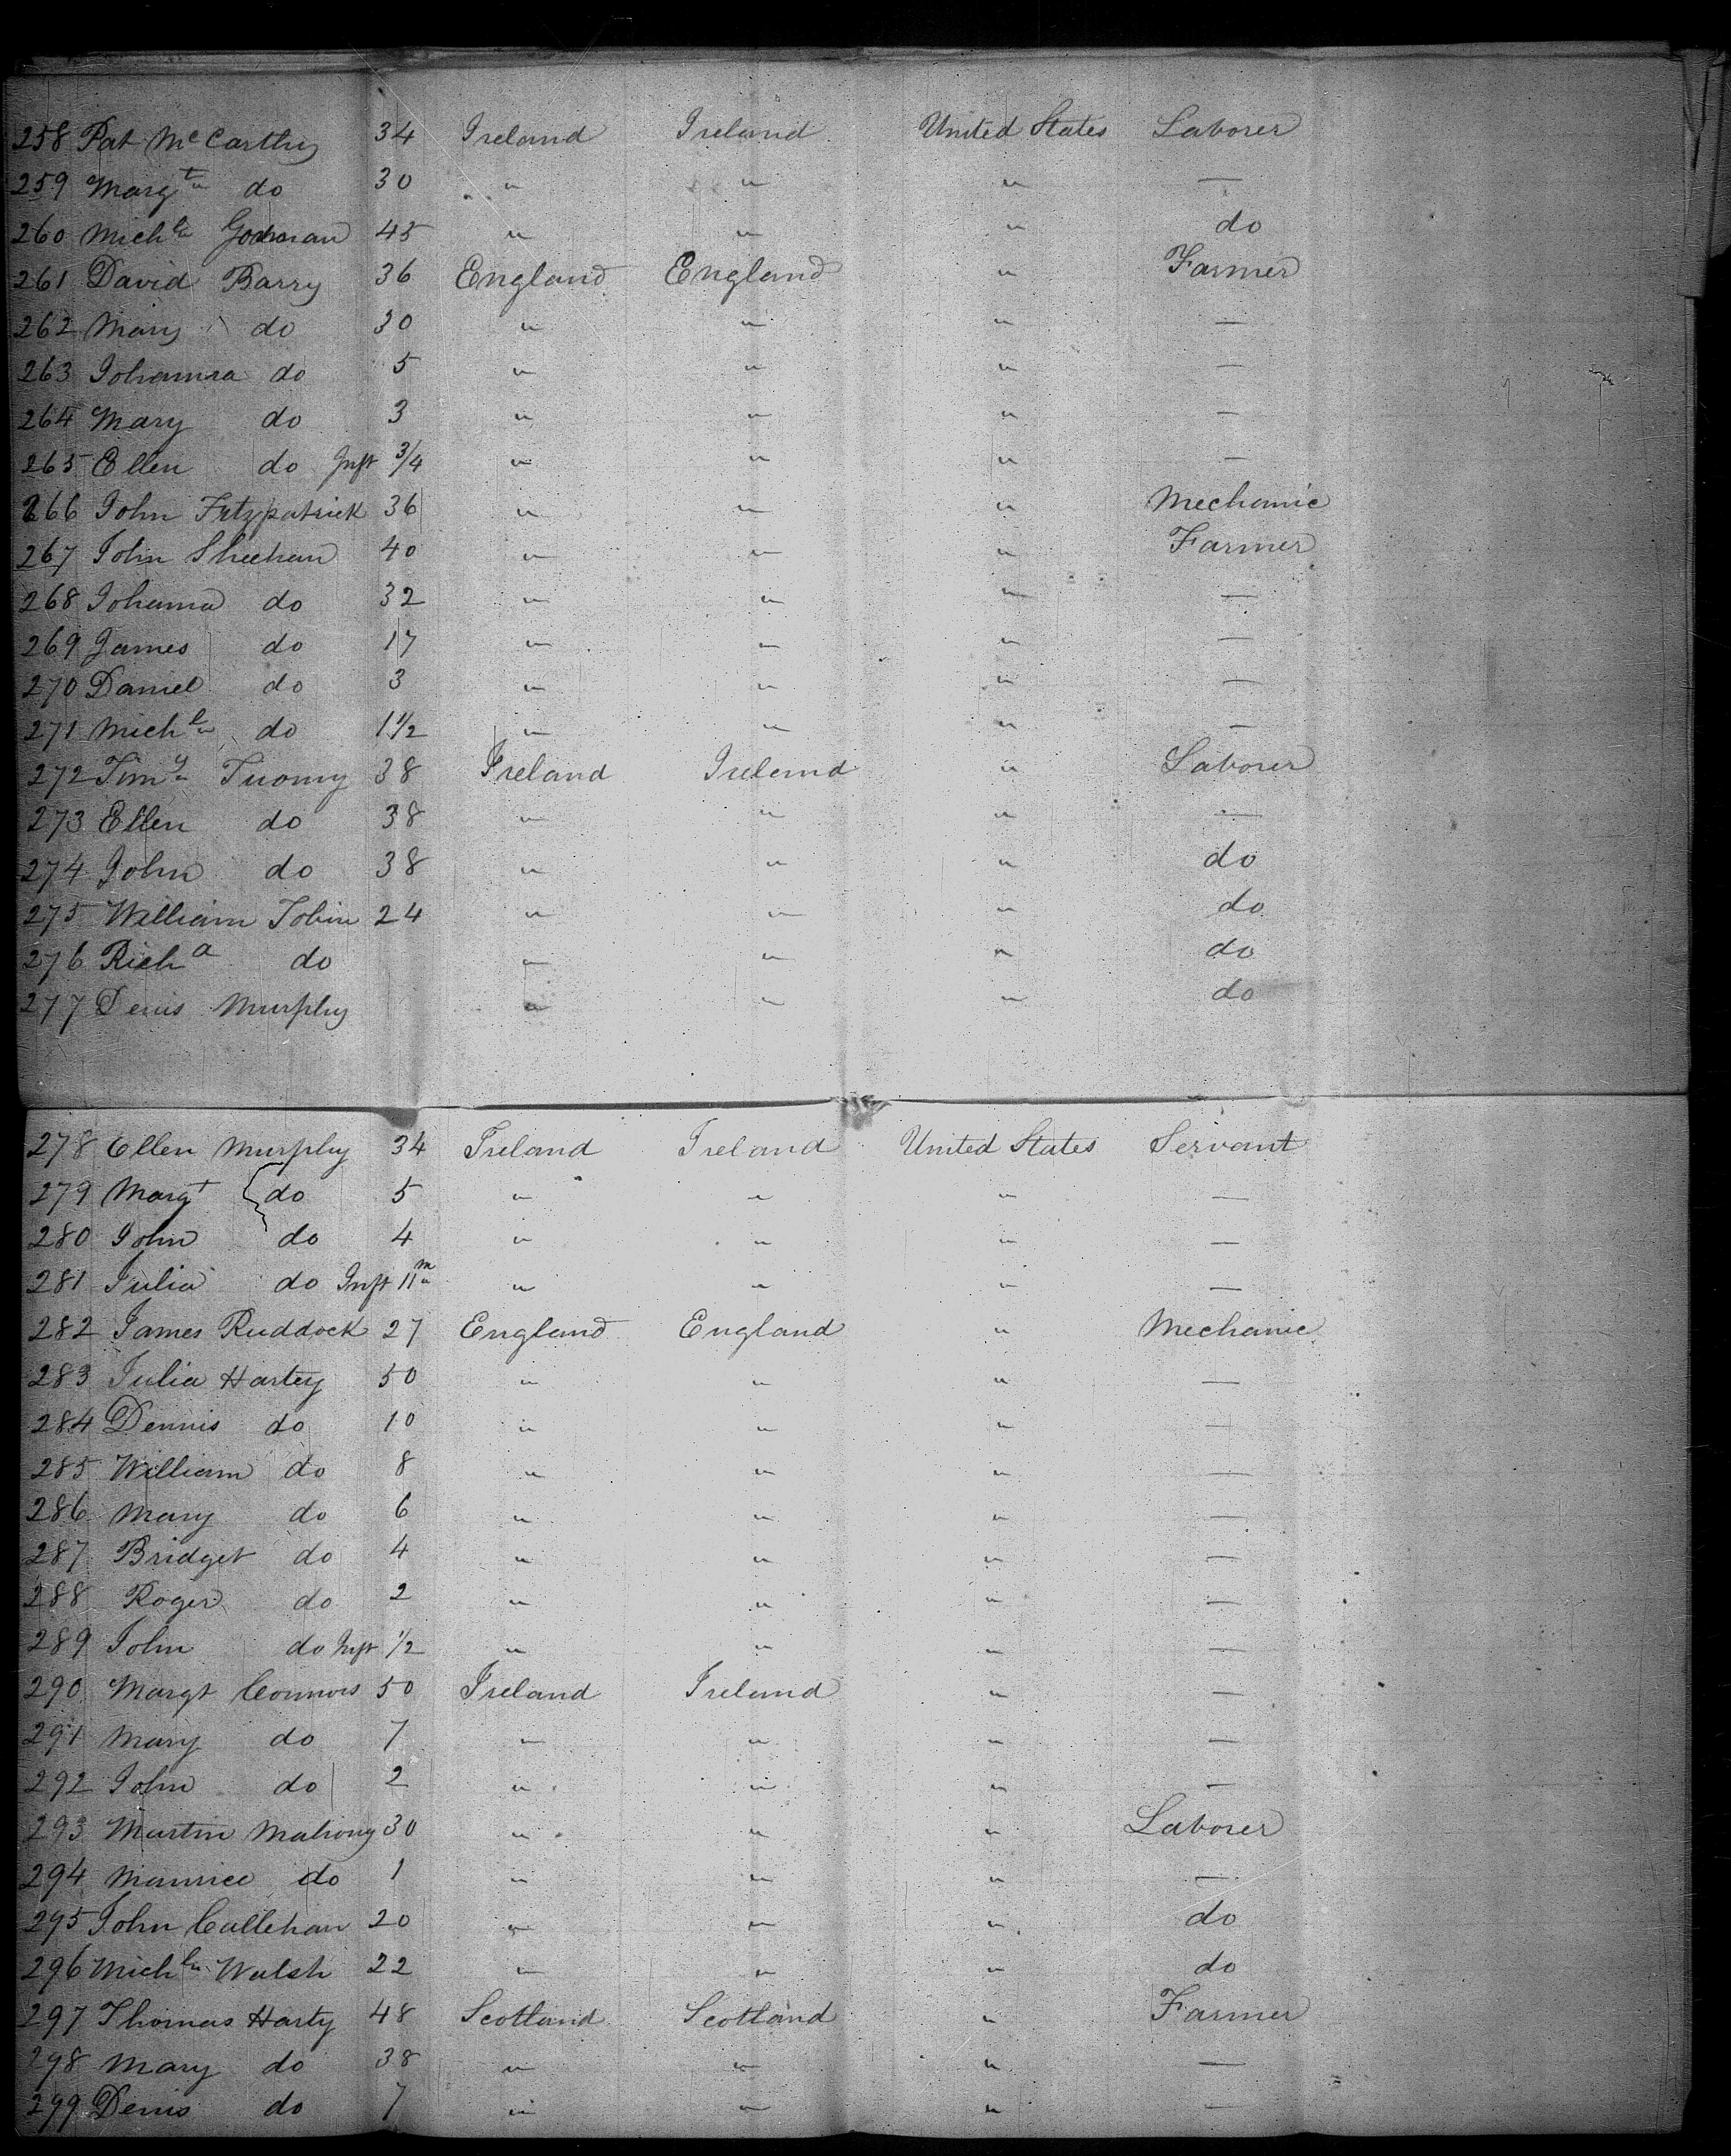 258 Pat McCarthy 34 Ireland Ireland United States Laborer
259 Margt do 30 " " " —
260 Michl 45 " " " do
261 David Barry 36 England England " Farmer
262 Mary do 30 " " " —
263 Johanna do 5 " " " —
264 Mary do 3 " " " —
265 Ellen do Inft 3/4 " " " —
266 John Fitzpatrick 36 " " " Mechanic
267 John Sheehan 40 " " " Farmer
268 Johanna do 32 " " " —
269 James do 17 " " " —
270 Daniel do 3 " " " —
271 Michl do 1 1/2 " " " —
272 Timy Tuomy 38 Ireland Ireland " Laborer
273 Ellen do 38 " " " —
274 John do 38 " " " do
275 William Tobin 24 " " " do
276 Richd do " " " do
277 Denis Murphy " " " do
278 Ellen Murphy 34 Ireland Ireland United States Servant
279 Margt do 5 " " " —
280 John do 4 " " " —
281 Julia do Inft 11m " " " —
282 James Ruddock 27 England England " Mechanic
283 Julia Hartey 50 " " " —
284 Dennis do 10 " " " —
285 William do 8 " " " —
286 Mary do 6 " " " —
287 Bridget do 4 " " " —
288 Roger do 2 " " " —
289 John do Inft 1/2 " " " —
290 Margt Connors 50 Ireland Ireland " —
291 Mary do 7 " " " —
292 John do 2 " " " —
293 Martin Mahony 30 " " " Laborer
294 Maurice do 1 " " " —
295 John Callehan 20 " " " do
296 Michl Walsh 22 " " " do
297 Thomas Harty 48 Scotland Scotland " Farmer
298 Mary do 38 " " " —
299 Denis do 7 " " " —